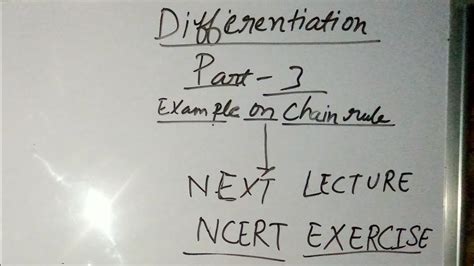 Differentiation
Part - 3
Example on Chain rule
NEXT LECTURE
NCERT EXERCISE